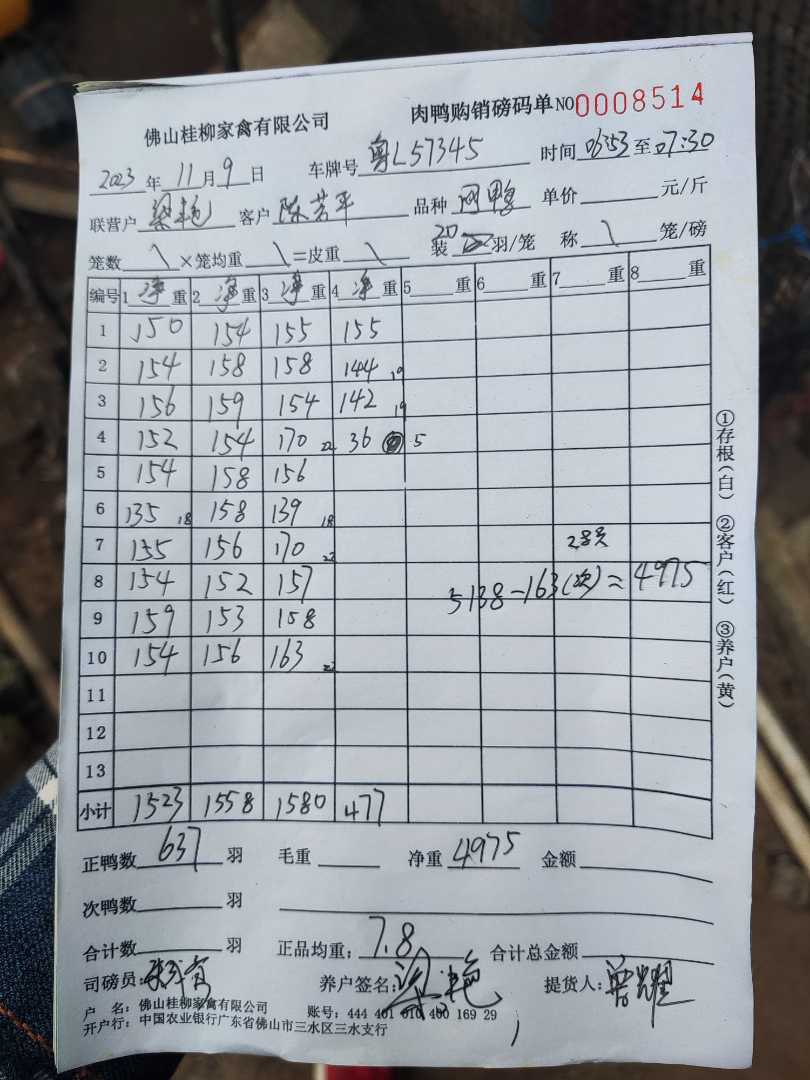 佛山桂柳家禽有限公司 肉鸭购销磅码单 NO0008514
2023年11月9日 车牌号 粤L57345 时间 06:53至07:30
联营户 梁艳 客户 陈芳平 品种 网鸭 单价 元/斤
笼数 \ ×笼均重 \ =皮重 \ 装 20 羽/笼 称 \ 笼/磅
编号 1净重 2净重 3净重 4净重 5重 6重 7重 8重
1 150 154 155 155
2 154 158 158 144 19
3 156 159 154 142 19
4 152 154 170 22 36 5
5 154 158 156
6 135 18 158 139 18
7 155 156 170 22
8 154 152 157
9 159 153 158
10 154 156 163 22
11
12
13
5138-163(次)=4975
小计 1523 1558 1580 477
正鸭数 637 羽 毛重 净重 4975 金额
次鸭数 羽
合计数 羽 正品均重: 7.8 合计总金额
司磅员: 养户签名: 梁艳 提货人: 曾耀
户 名: 佛山桂柳家禽有限公司 账号: 444 401 010 400 169 29
开户行: 中国农业银行广东省佛山市三水区三水支行
①存根(白) ②客户(红) ③养户(黄)